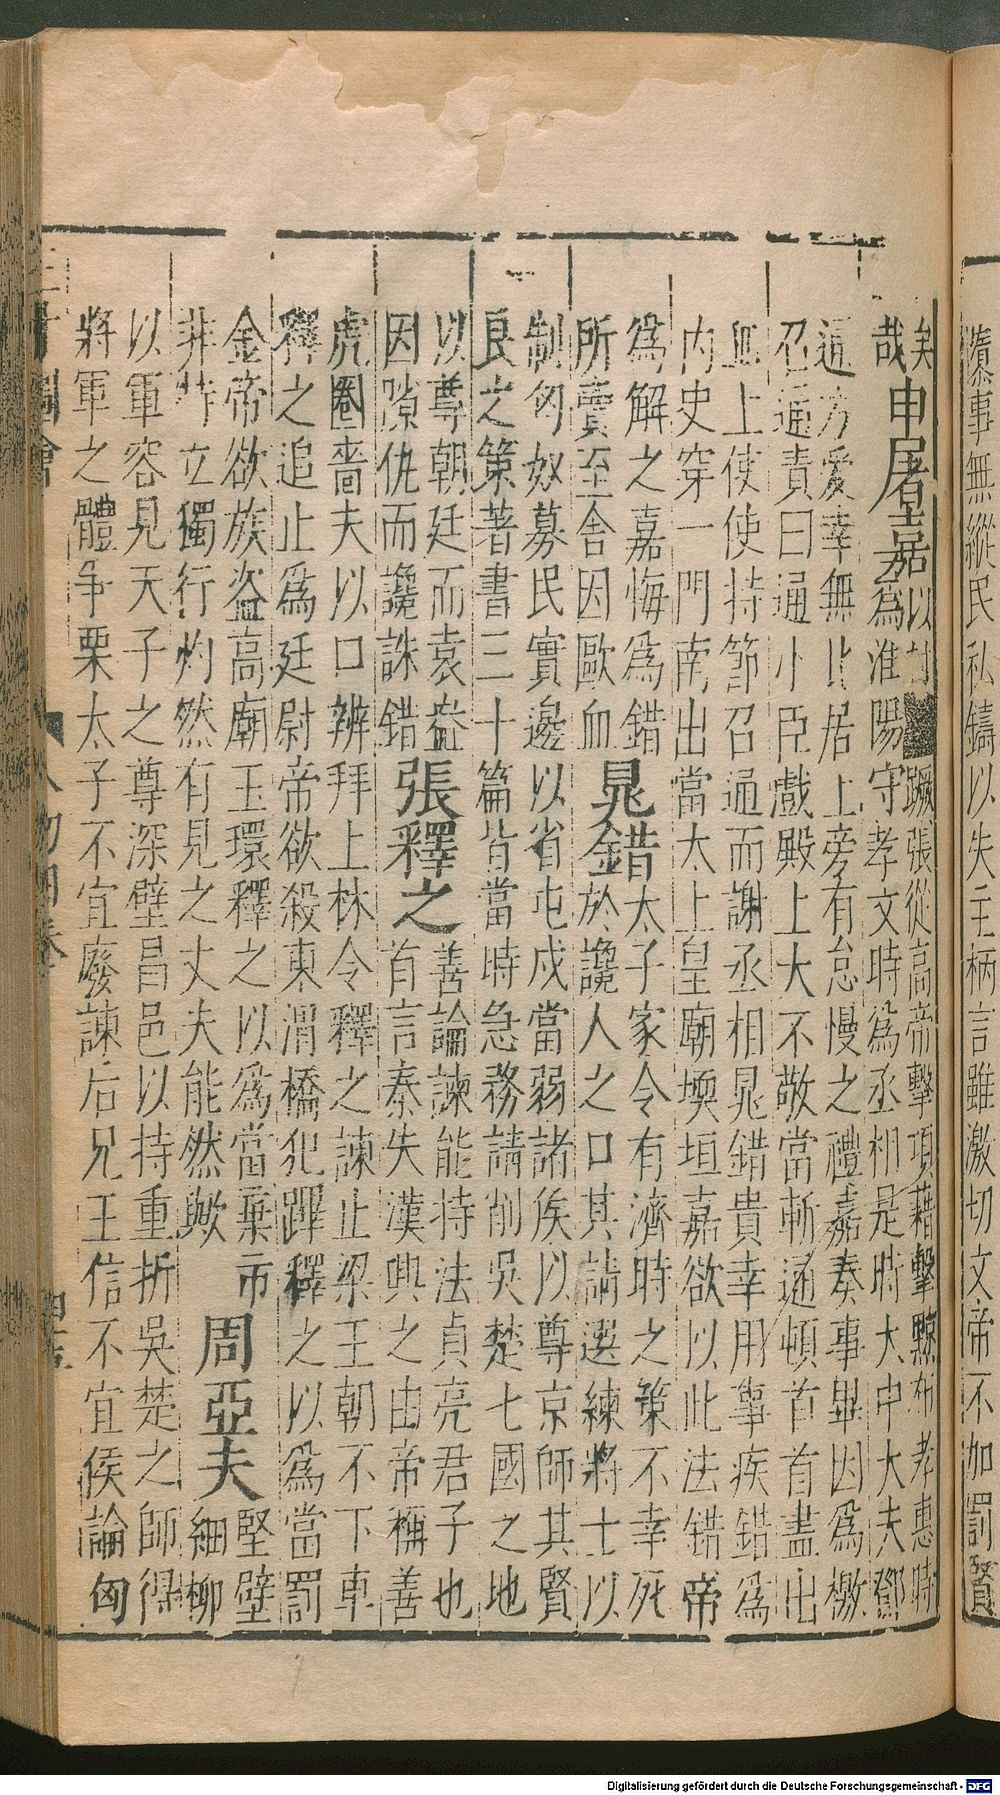 隳事無縱民私鑄以失主柄言雖激切文帝不加罰賢
矣
哉
申屠嘉
以材蹶張從高帝擊項藉擊黥布孝惠時
為淮陽守孝文時為丞相是時大中大夫鄧
通方愛幸無比居上旁有怠慢之禮嘉奏事畢因為檄
召通責曰通小臣戲殿上大不敬當斬通頓首首盡出
血上使使持節召通而謝丞相晁錯貴幸用事疾錯為
内史穿一門南出當太上皇廟堧垣嘉欲以此法錯帝
為解之嘉悔為錯
所賣至舍因歐血
晁錯
太子家令有濟時之策不幸死
於讒人之口其請選練將士以
制匈奴募民實邊以省屯戍當弱諸侯以尊京師其賢
良之策著書三十篇皆當時急務請削吳楚七國之地
以尊朝廷而袁盎
因隙仇而讒誅錯
張釋之
善論諫能持法貞亮君子也
首言秦失漢興之由帝稱善
虎圈嗇夫以口辨拜上林令釋之諫止梁王朝不下車
釋之追止為廷尉帝欲殺東渭橋犯蹕釋之以為當罰
金帝欲族盜高廟玉環釋之以為當棄市
非特立獨行灼然有見之丈夫能然歟
周亞夫
堅壁
細柳
以軍容見天子之尊深壁昌邑以持重折吳楚之師得
將軍之體爭栗太子不宜廢諫后兄王信不宜侯論匈
三才圖會 人物四卷
Digitalisierung gefördert durch die Deutsche Forschungsgemeinschaft - DFG